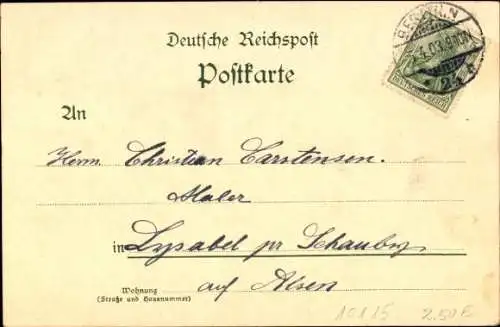 Deutsche Reichspost
Postkarte
BERLIN.N
2.4.03.9-10N
DEUTSCHES REICH
An
Herrn Christian Carstensen.
Maler
in Lysabel pr Schauby
auf Alsen
Wohnung
(Straße und Hausnummer)
10115 2.50 E